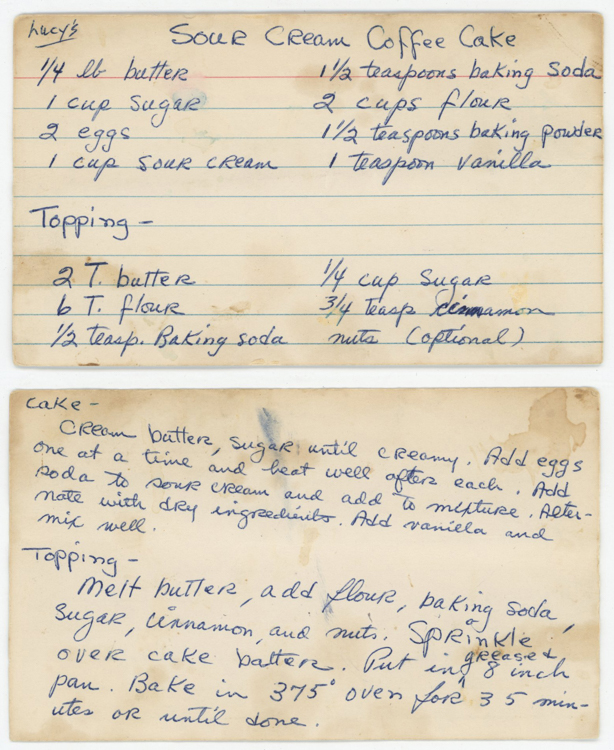 Lucy's
Sour Cream Coffee Cake
1/4 lb butter 1 1/2 teaspoons baking soda
1 cup sugar 2 cups flour
2 eggs 1 1/2 teaspoons baking powder
1 cup sour cream 1 teaspoon vanilla
Topping -
2 T. butter 1/4 cup sugar
6 T. flour 3/4 teasp cinnamon
1/2 teasp. Baking soda nuts (optional)
Cake -
Cream butter, sugar until creamy. Add eggs
one at a time and beat well after each. Add
soda to sour cream and add to mixture. Alter-
nate with dry ingredients. Add vanilla and
mix well.
Topping -
Melt butter, add flour, baking soda,
sugar, cinnamon, and nuts. Sprinkle
over cake batter. Put in a greased 8 inch
pan. Bake in 375° oven for 35 min-
utes or until done.